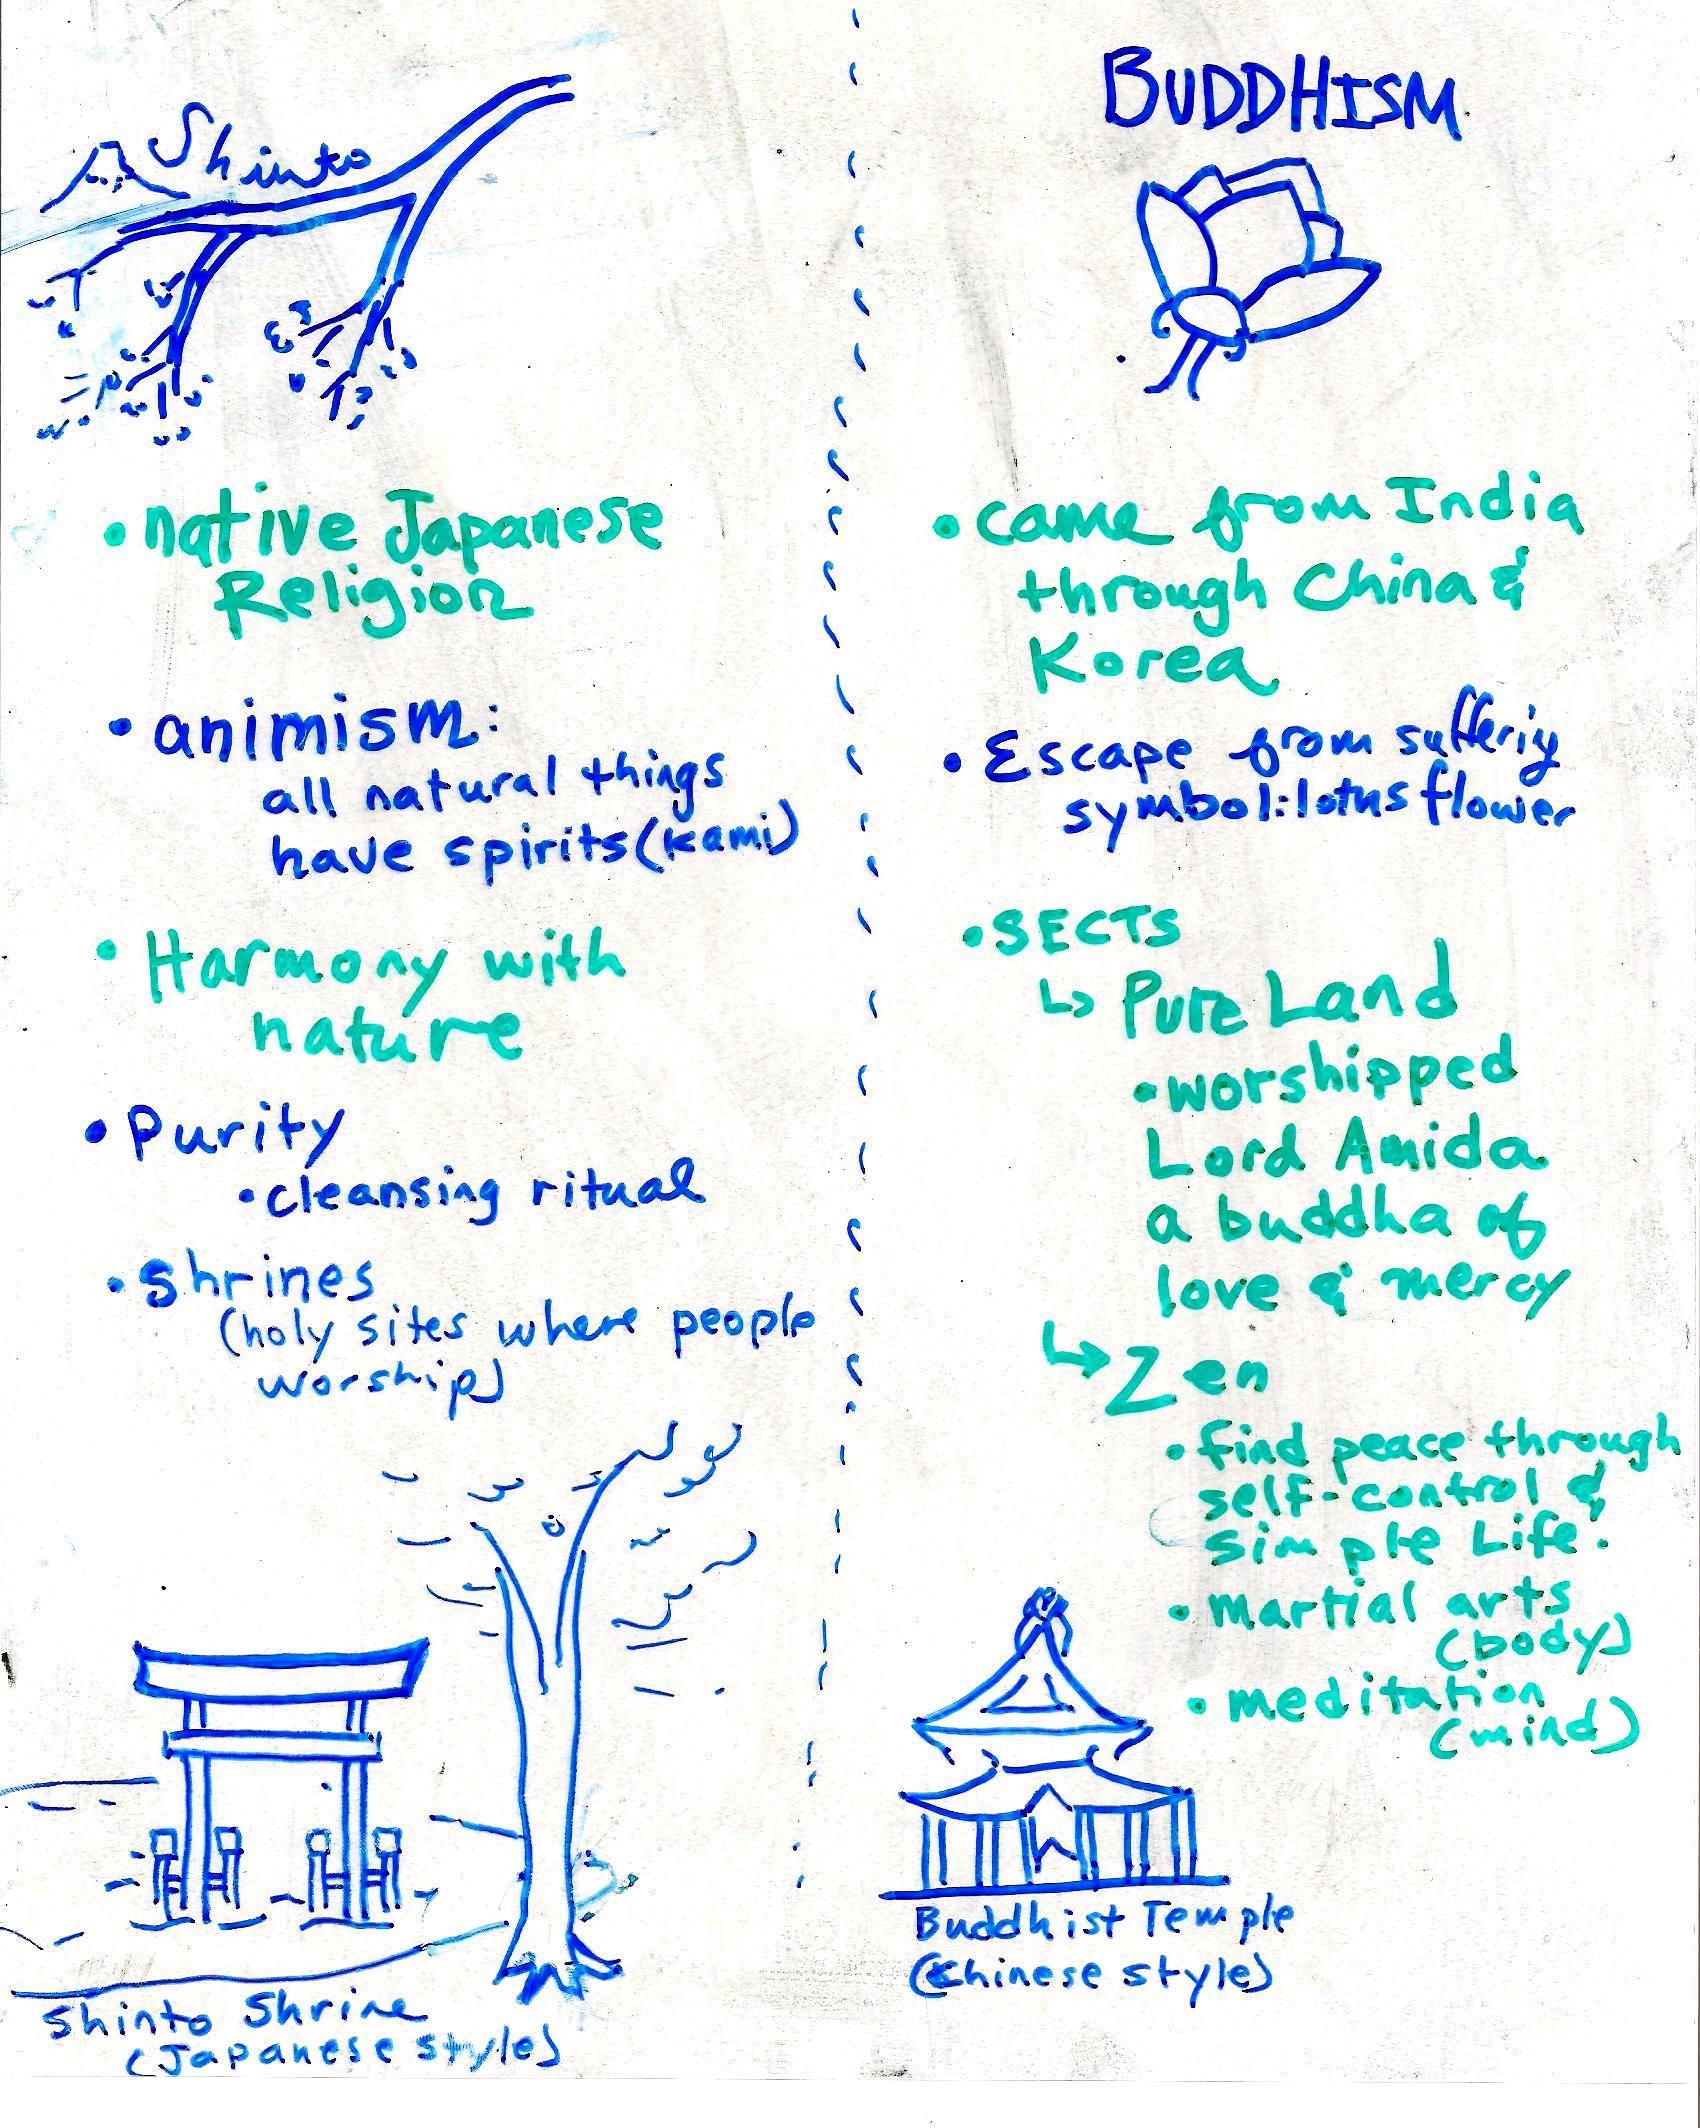 Shinto
• native Japanese
Religion
• animism:
all natural things
have spirits (kami)
• Harmony with
nature
• Purity
• cleansing ritual
• Shrines
(holy sites where people
worship)
Shinto Shrine
(Japanese style)
BUDDHISM
• came from India
through China &
Korea
• Escape from suffering
symbol: lotus flower
• SECTS
↳ Pure Land
• worshipped
Lord Amida
a buddha of
love & mercy
↳ Zen
• find peace through
self-control &
simple Life.
• martial arts
(body)
• meditation
(mind)
Buddhist Temple
(Chinese style)